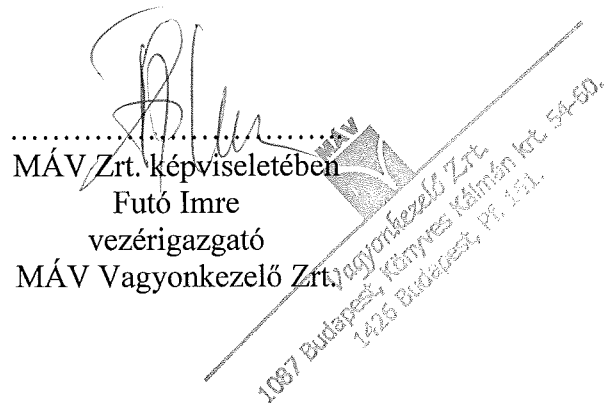 MÁV Zrt. képviseletében
Futó Imre
vezérigazgató
MÁV Vagyonkezelő Zrt.
MÁV
Vagyonkezelő Zrt.
1087 Budapest, Könyves Kálmán krt. 54-60.
1426 Budapest, Pf. 151.